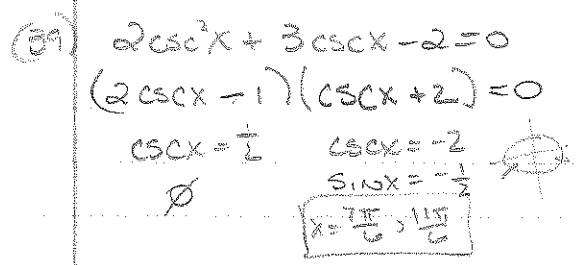 (39) 2csc²x + 3cscx - 2 = 0
(2cscx - 1)(cscx + 2) = 0
cscx = 1/2 cscx = -2
∅ sinx = -1/2
x = 7π/6, 11π/6